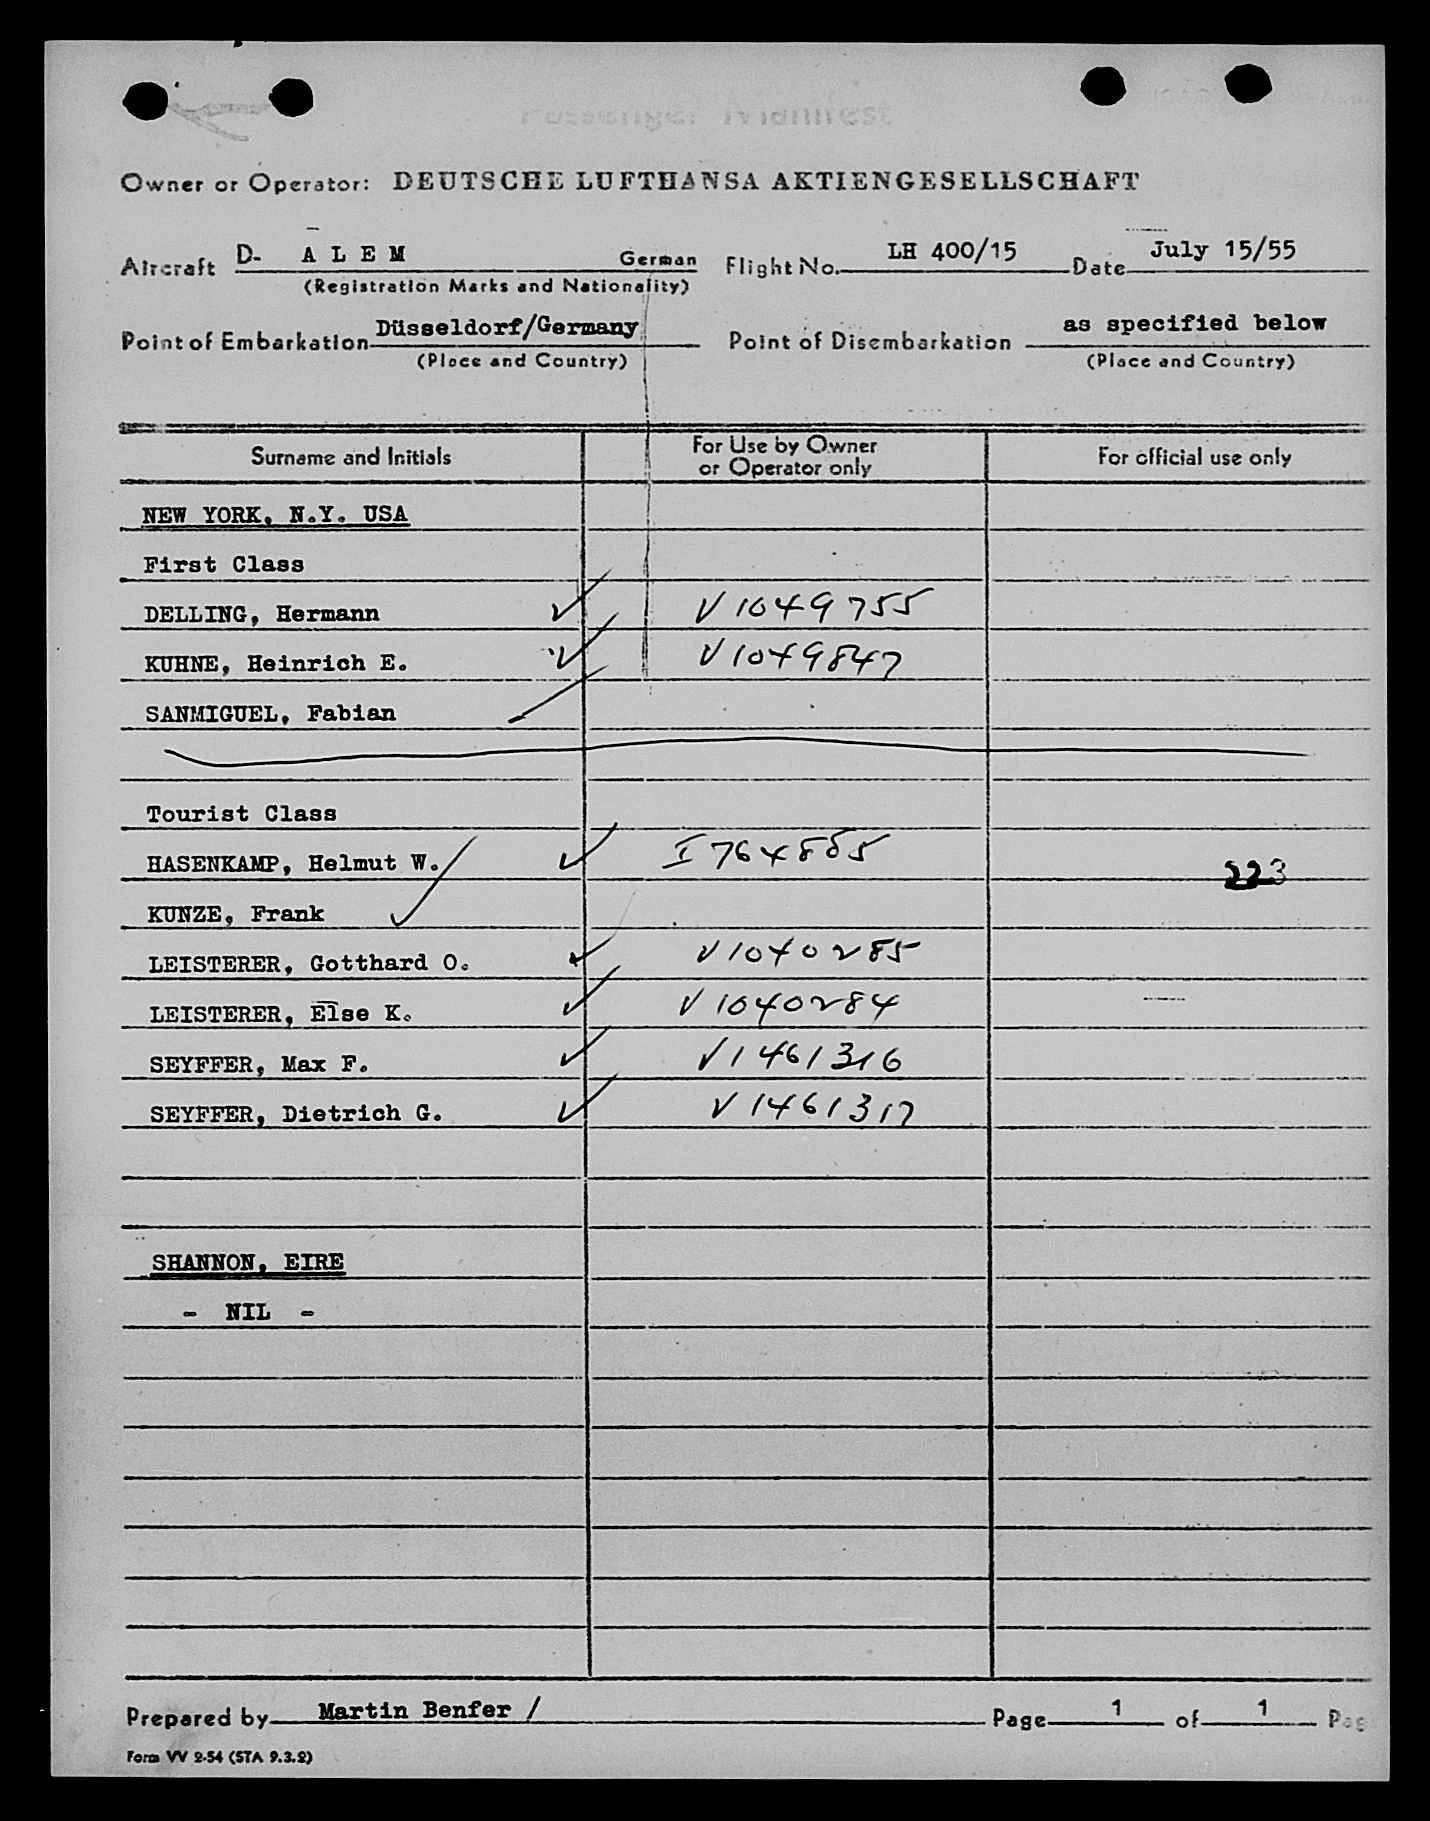 Passenger Manifest
Owner or Operator: DEUTSCHE LUFTHANSA AKTIENGESELLSCHAFT
Aircraft D- A L E M German Flight No. LH 400/15 Date July 15/55
(Registration Marks and Nationality)
Point of Embarkation Düsseldorf/Germany Point of Disembarkation as specified below
(Place and Country) (Place and Country)
Surname and Initials For Use by Owner or Operator only For official use only
NEW YORK, N.Y. USA
First Class
DELLING, Hermann V1049755
KUHNE, Heinrich E. V1049847
SANMIGUEL, Fabian
Tourist Class
HASENKAMP, Helmut W. I764885 223
KUNZE, Frank
LEISTERER, Gotthard O. V1040285
LEISTERER, Else K. V1040284
SEYFFER, Max F. V1461316
SEYFFER, Dietrich G. V1461317
SHANNON, EIRE
- NIL -
Prepared by Martin Benfer / Page 1 of 1 Pag
Form VV 2-54 (STA 9.3.2)